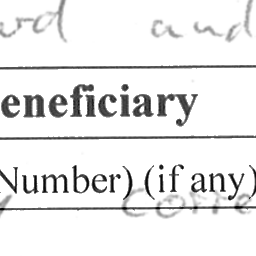 and
eneficiary
Number) (if any)
corre